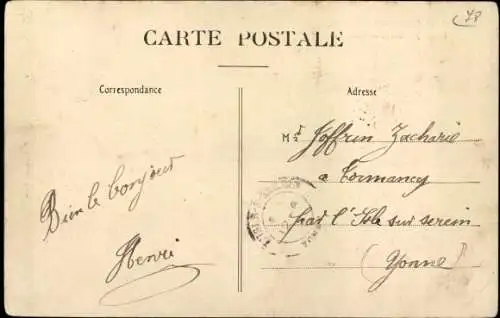 48
CARTE POSTALE
Correspondance
Adresse
Mr Joffrin Zacharie
a Tormancy
par l'Isle sur serein
(Yonne)
Bien le bonjour
Henri